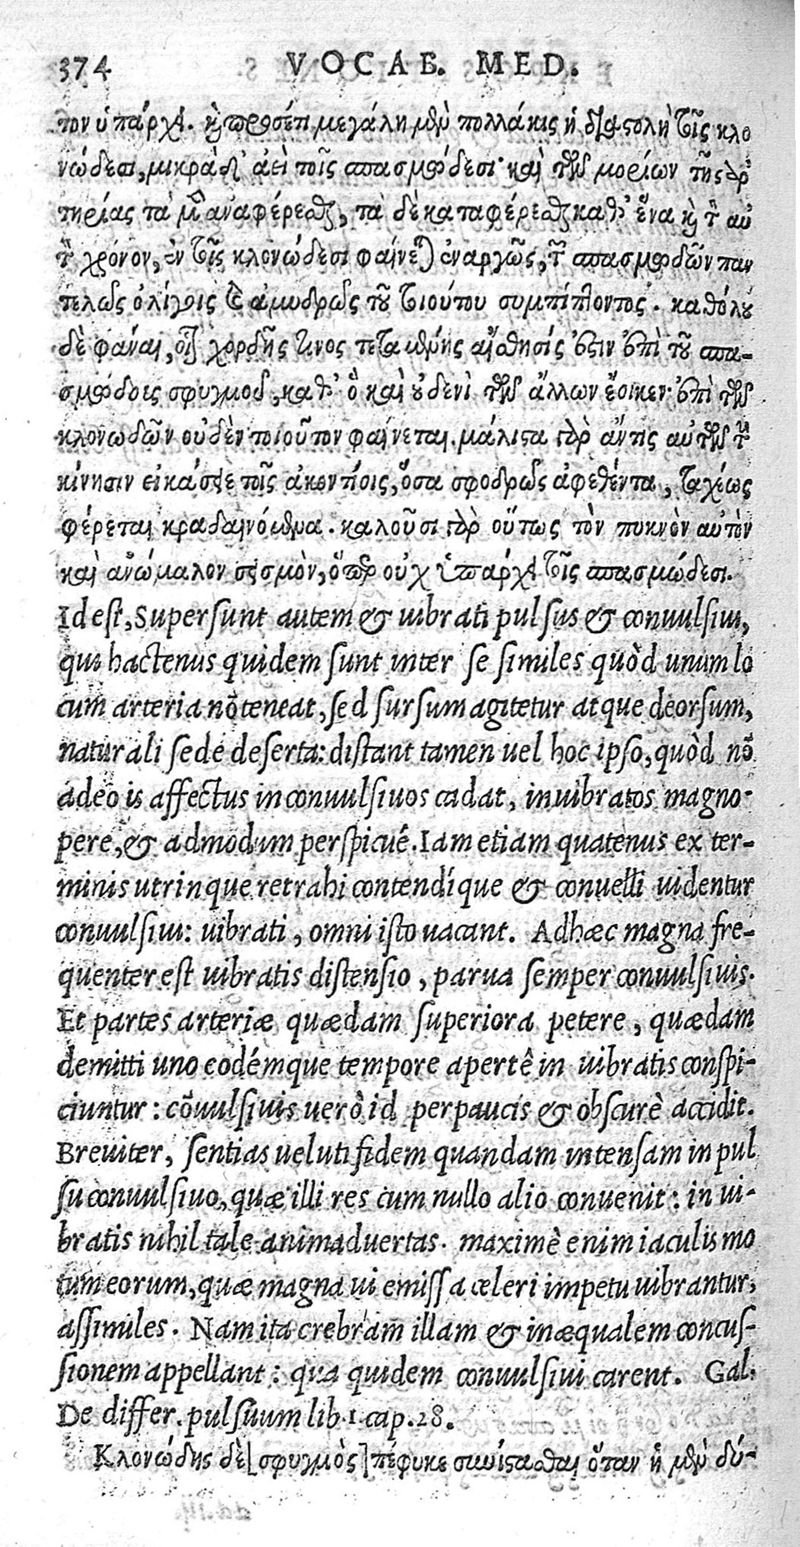 374 VOCAB. MED.
τον ὑπάρχει. καὶ προσέτι μεγάλη μὲν πολλάκις ἡ διαστολὴ τοῖς κλο
νώδεσι, μικρὰ δ' ἀεὶ τοῖς σπασμώδεσι· καὶ τῶν μορίων τῆς ἀρ
τηρίας τὰ μὲν ἀναφέρεσθαι, τὰ δὲ καταφέρεσθαι καθ' ἕνα καὶ τὸν αὐ
τὸν χρόνον, ἐν τοῖς κλονώδεσι φαίνεται ἐναργῶς, τῶν σπασμωδῶν παν
τελῶς ὀλίγοις καὶ ἀμυδρῶς τοῦ τοιούτου συμπίπτοντος. καθόλου
δὲ φάναι, οἷον χορδῆς τινος τεταμένης αἴσθησίς ἐστιν ἐπὶ τοῦ σπα-
σμώδοις σφυγμοῦ, καθ' ὃ καὶ οὐδενὶ τῶν ἄλλων ἔοικεν· ἐπὶ τῶν
κλονωδῶν οὐδὲν τοιοῦτον φαίνεται. μάλιστα γὰρ ἄν τις αὐτῶν τὴν
κίνησιν εἰκάσειε τοῖς ἀκοντίοις, ὅσα σφοδρῶς ἀφεθέντα, ταχέως
φέρεται κραδαινόμενα. καλοῦσι γὰρ οὕτως τὸν πυκνὸν αὐτὸν
καὶ ἀνώμαλον σεισμὸν, ὅπερ οὐχ ὑπάρχει τοῖς σπασμώδεσι.
Id est, Supersunt autem & uibrati pulsus & conuulsiui,
qui hactenus quidem sunt inter se similes quòd unum lo
cum arteria nõ teneat, sed sursum agitetur atque deorsum,
naturali sede deserta: distant tamen uel hoc ipso, quòd nõ
adeo is affectus in conuulsiuos cadat, in uibratos magno-
pere, & admodum perspicuè. Iam etiam quatenus ex ter-
minis utrinque retrahi contendíque & conuelli uidentur
conuulsiui: uibrati, omni isto uacant. Adhæc magna fre-
quenter est uibratis distensio, parua semper conuulsiuis.
Et partes arteriæ quædam superiora petere, quædam
demitti uno eodémque tempore apertè in uibratis conspi-
ciuntur: cõuulsiuis uerò id perpaucis & obscurè accidit.
Breuiter, sentias ueluti fidem quandam intensam in pul
su conuulsiuo, quæ illi res cum nullo alio conuenit: in ui-
bratis nihil tale animaduertas. maximè enim iaculis mo
tum eorum, quæ magna ui emissa celeri impetu uibrantur,
assimiles. Nam ita crebram illam & inæqualem concus-
sionem appellant: qua quidem conuulsiui carent. Gal.
De differ. pulsuum lib. 1. cap. 28.
Κλονώδης δὲ [σφυγμὸς] πέφυκε συνίστασθαι ὅταν ἡ μὲν δύ-